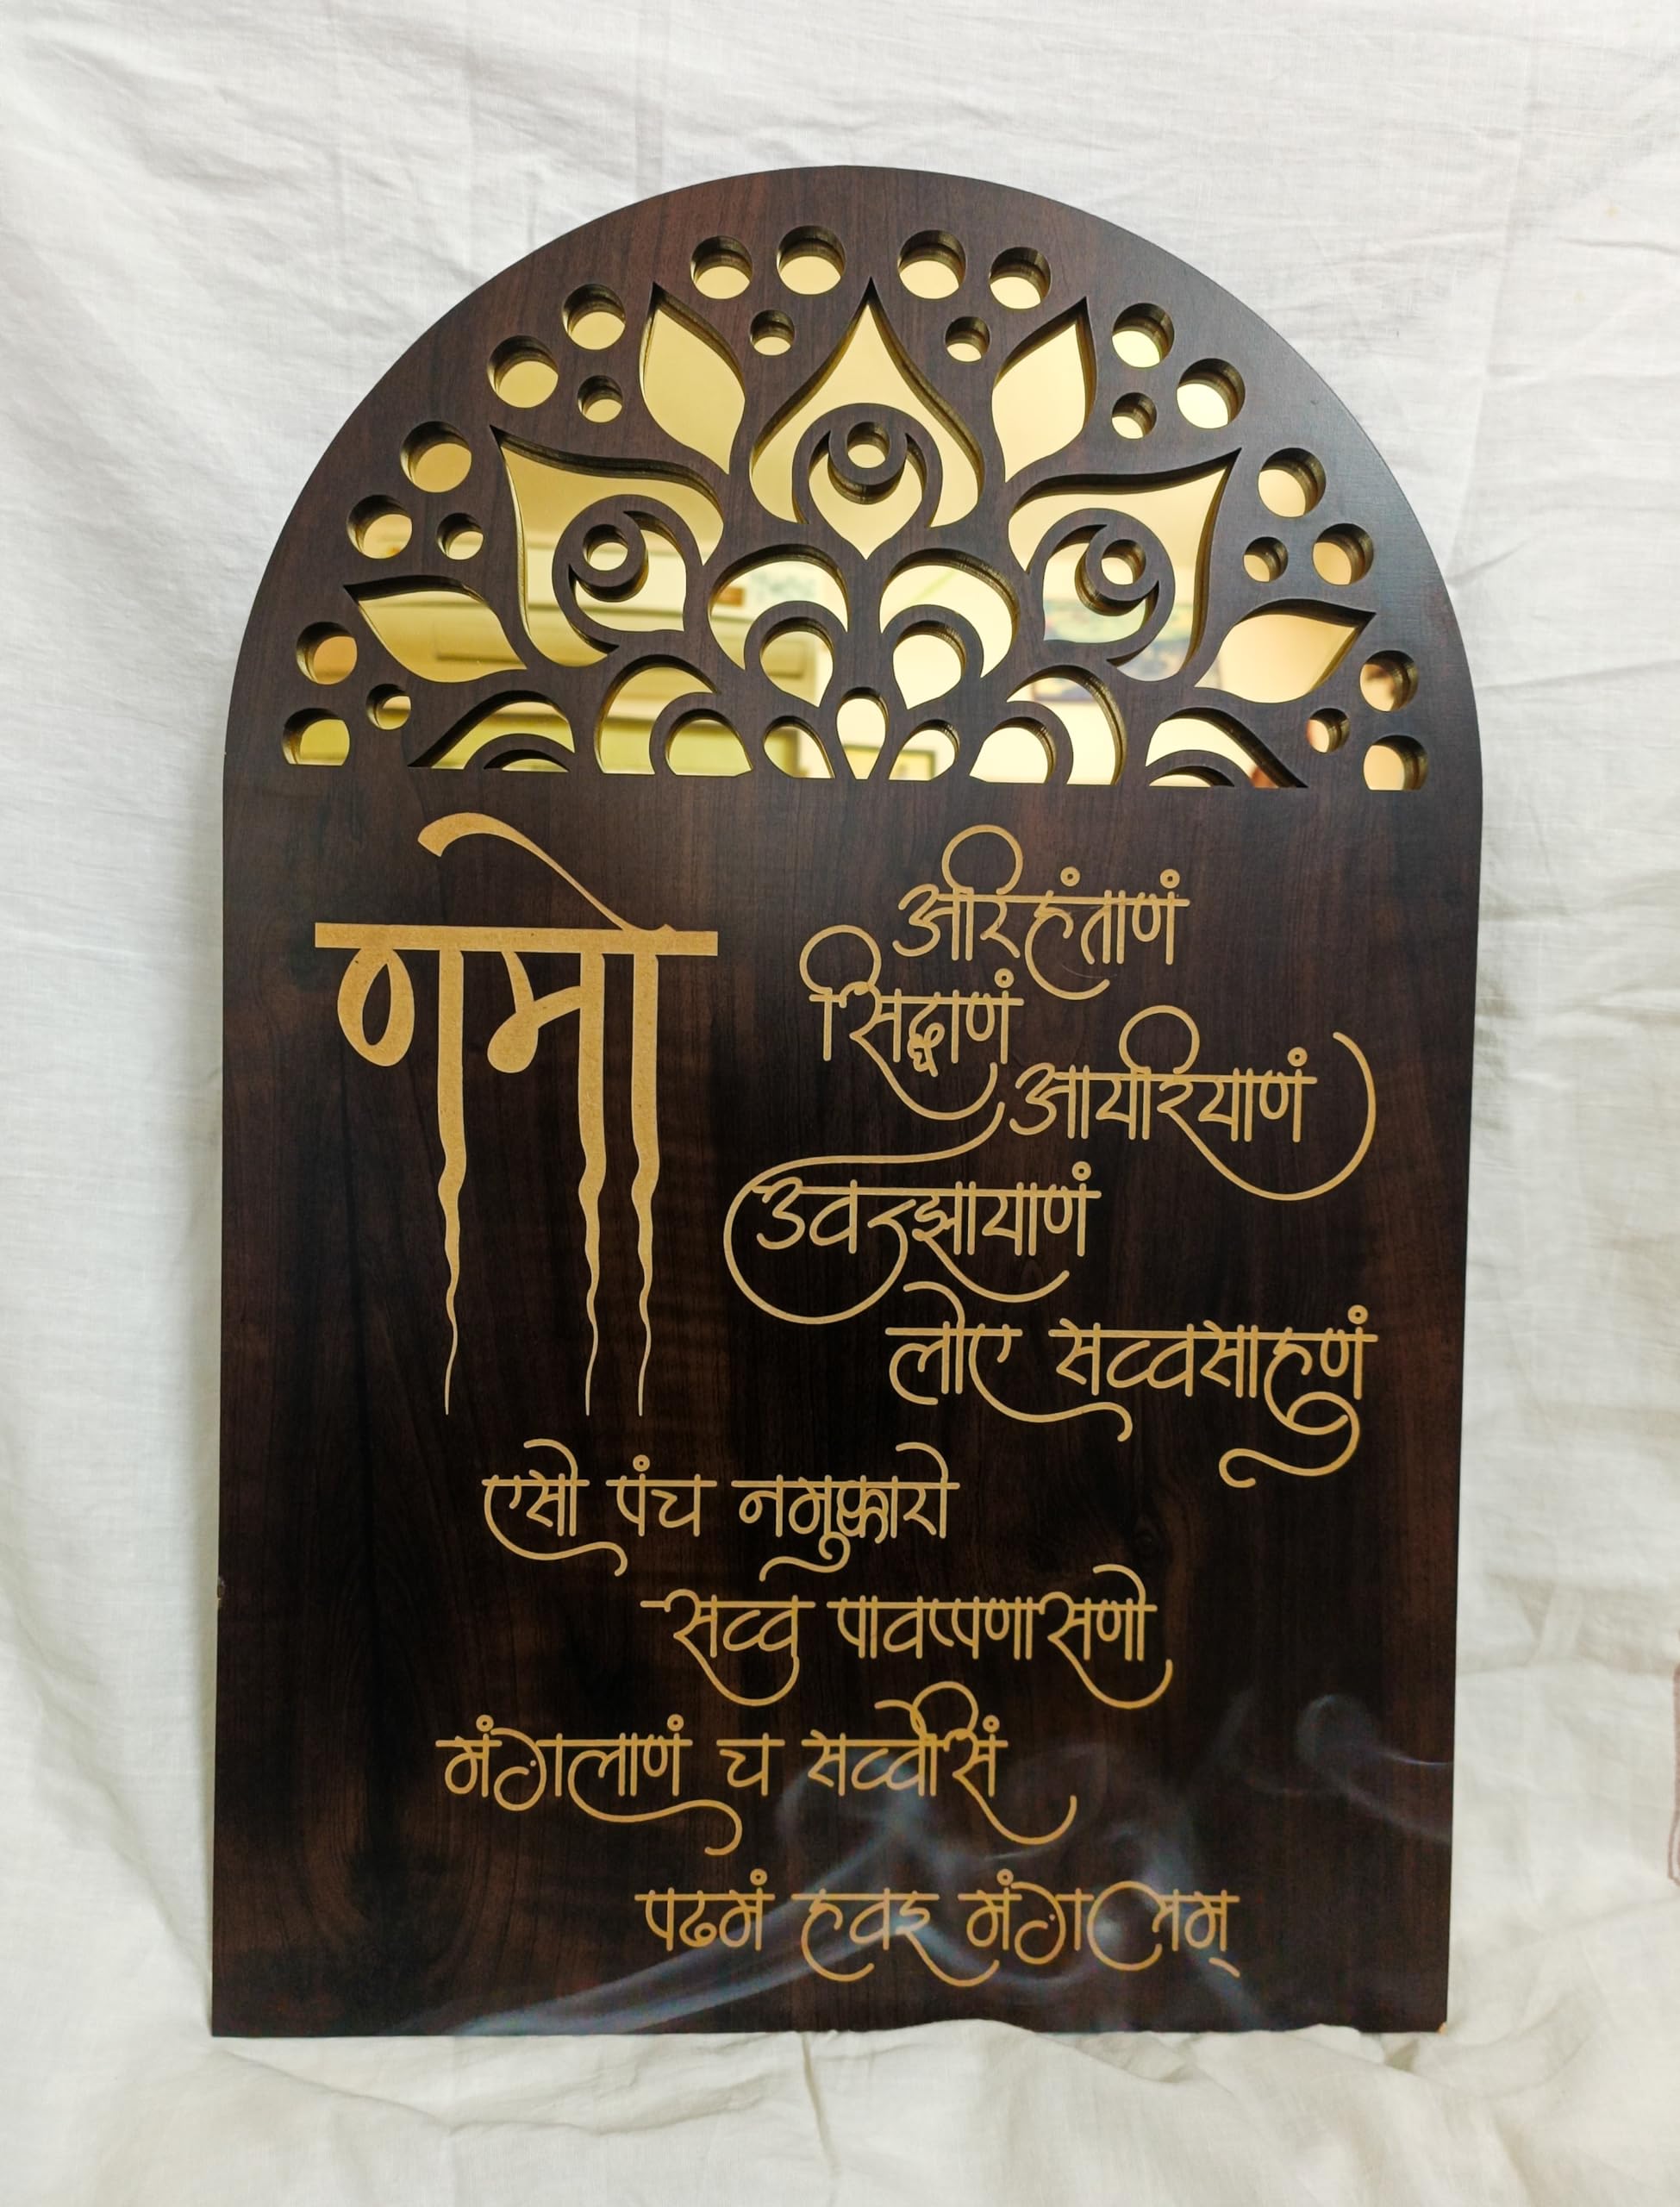 णमो
अरिहंताणं
सिद्धाणं
आयरियाणं
उवज्झायाणं
लोए सव्वसाहुणं
एसो पंच नमुक्कारो
सव्व पावप्पणासणो
मंगलाणं च सव्वेसिं
पढमं हवइ मंगलम्